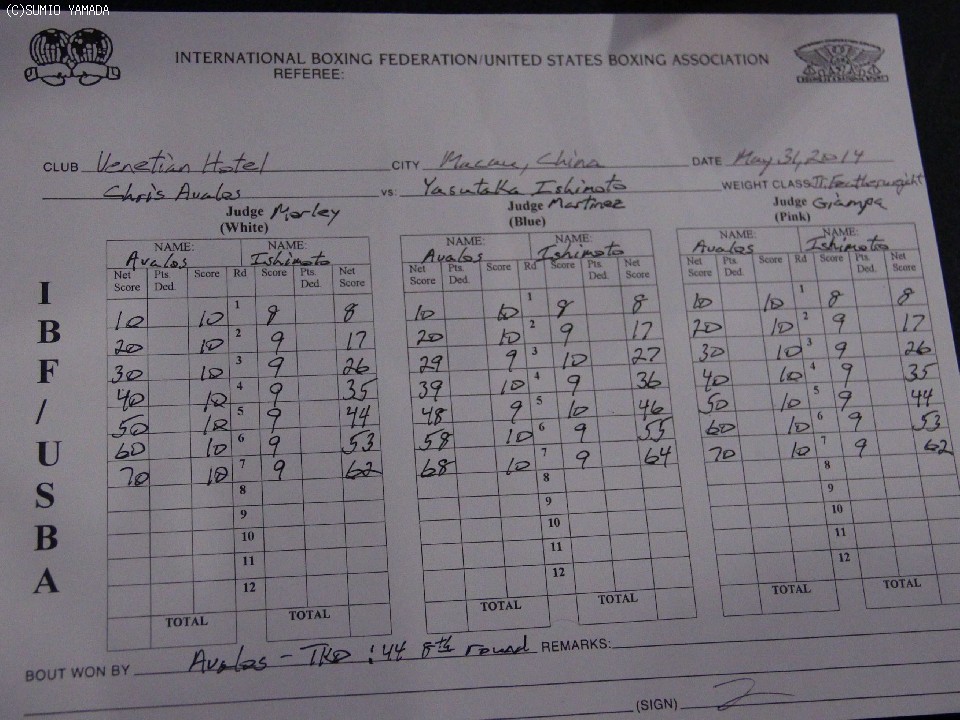 (C)SUMIO YAMADA
INTERNATIONAL BOXING FEDERATION/UNITED STATES BOXING ASSOCIATION
REFEREE:
CLUB Venetian Hotel CITY Macau, China DATE May 31, 2014
Chris Avalos vs: Yasutaka Ishimoto WEIGHT CLASS: Jr. Featherweight
Judge Morley Judge Martinez Judge Giampa
(White) (Blue) (Pink)
NAME: NAME: NAME: NAME: NAME: NAME:
Avalos Ishimoto Avalos Ishimoto Avalos Ishimoto
Net Score Pts. Ded. Score Rd Score Pts. Ded. Net Score Net Score Pts. Ded. Score Rd Score Pts. Ded. Net Score Net Score Pts. Ded. Score Rd Score Pts. Ded. Net Score
10 10 1 8 8 10 10 1 8 8 10 10 1 8 8
20 10 2 9 17 20 10 2 9 17 20 10 2 9 17
30 10 3 9 26 29 9 3 10 27 30 10 3 9 26
40 10 4 9 35 39 10 4 9 36 40 10 4 9 35
50 10 5 9 44 48 9 5 10 46 50 10 5 9 44
60 10 6 9 53 58 10 6 9 55 60 10 6 9 53
70 10 7 9 62 68 10 7 9 64 70 10 7 9 62
8 8 8
9 9 9
10 10 10
11 11 11
12 12 12
TOTAL TOTAL TOTAL TOTAL TOTAL TOTAL
IBF/USBA
BOUT WON BY Avalos - TKO :44 8th round REMARKS:
(SIGN)